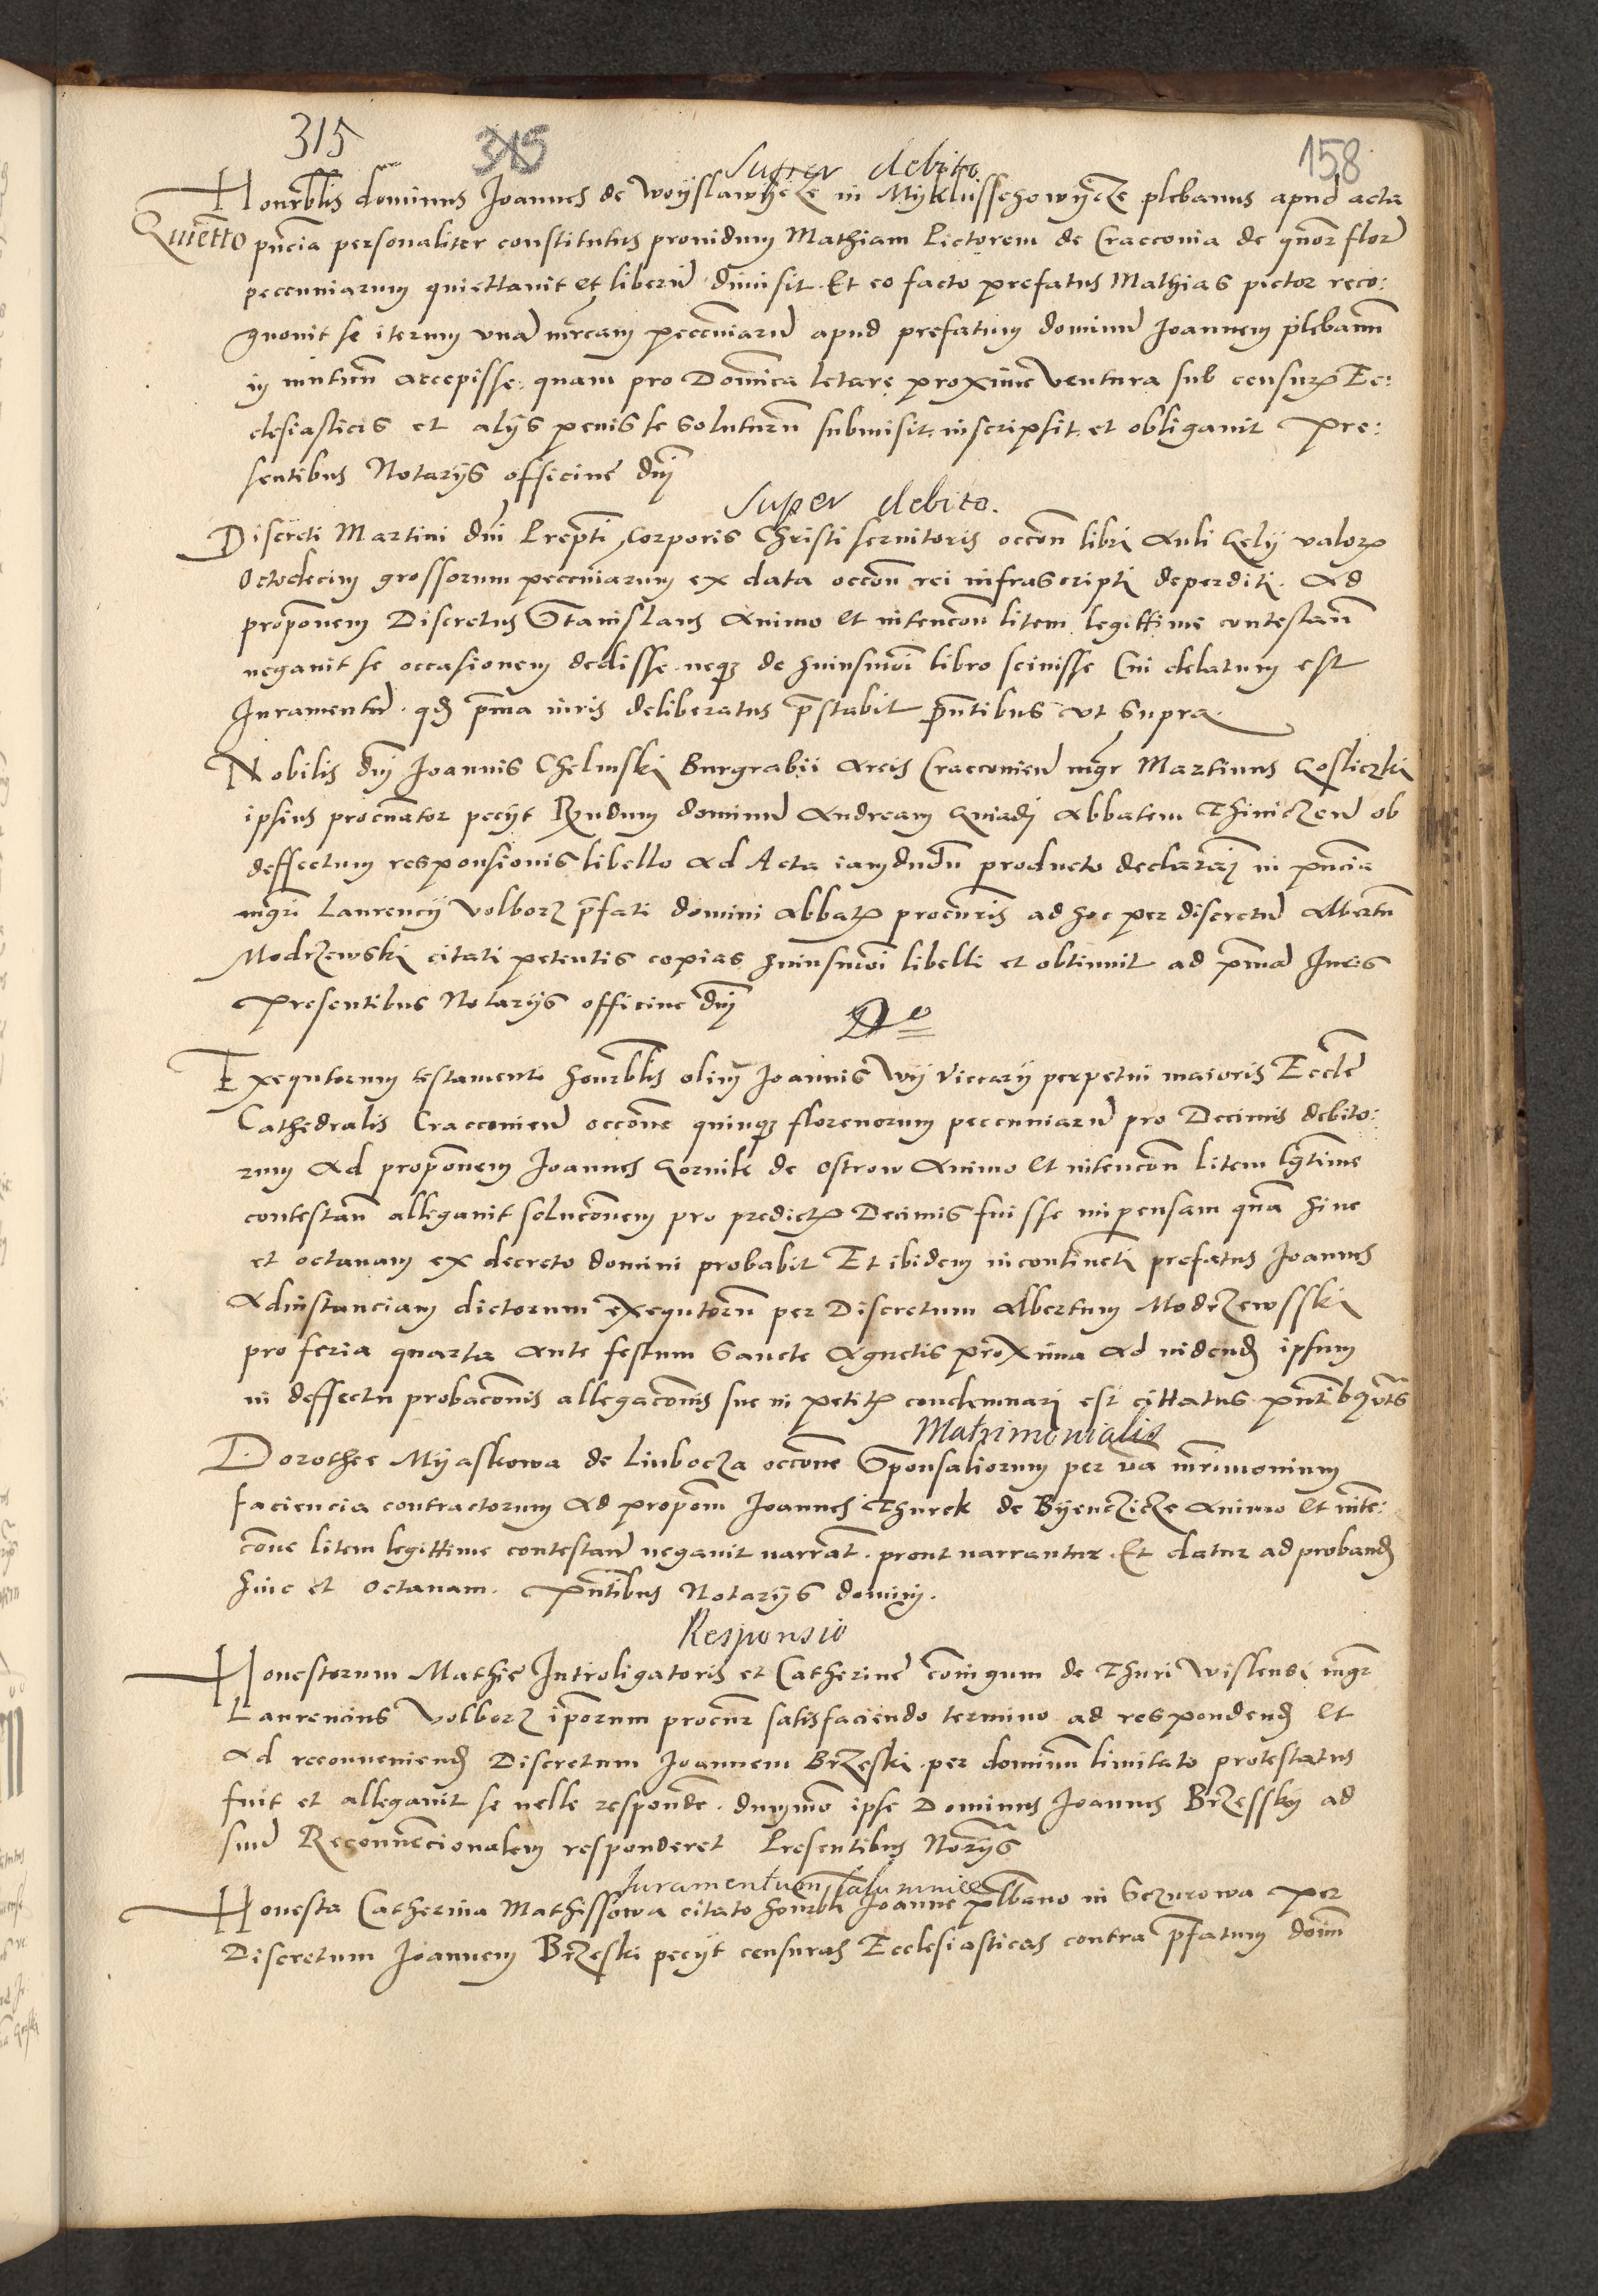 315 315 158
Super debito
Honorblis dominus Joannes de Woyslawycze in Myklussehowycze plebanus apud acta
Quietto pncia personaliter constitutus providum Mathiam Pictorem de Craccovia de qnor flor
peccuniarum quiettavit et liberu dimisit. Et eo facto prefatus Mathias pictor reco:
gnovit se iterum una mrcam peccuniaru apud prefatum dominu Joannem plebanu
in mutuu accepisse: quam pro Domica letare proxime ventura sub censur Ec:
clesiasticis et alys penis se soluturu submisit inscripsit et obligavit Pre:
sentibus Notarys officine dnj
Super debito.
Discreti Martini dni Prepti Corporis Christi servitoris occon libri Auli Gely valor
Octodecim grossorum peccuniarum ex data occon rei infrascripti deperditi. Ad
proponem Discretus Stanislaus Animo et intencon litem legittime contestan
negavit se occasionem dedisse neqz de huiusmoi libro scivisse Cui delatum est
Juramentu. qd pma iuris deliberatus pstabit pntibus ut supra
Nobilis dnj Joannis Chelmski Burgrabii Arcis Craccovien mgr Martinus Gosliczki
ipsius procurator pecyt Rndum dominu Andream Gniadj Abbatem Thiniczen ob
deffectum responsionis libello ad Acta iamdudu producto declararj in pncia
mgri Laurency Volborz pfati domini abbatis procuris ad hoc per discretu Albertu
Modrzewski citati petentis copias huiusmoi libelli et obtinuit ad pma Juris
Presentibus Notarys officine dnj
Do
Exequtorum testamenti honorblis olim Joannis Wy Vicary perpetui maioris Eccle
Cathedralis Craccovien occone quinqz florenorum peccuniaru pro Decimis debito:
rum Ad proponem Joannes Gornik de Ostrow Animo et intencon litem lgtime
contestan allegavit solucionem pro predict Decimis fuisse impensam qua hinc
et octavam ex decreto domini probabit Et ibidem incontineti prefatus Joannes
Adinstanciam dictorum exequtoru per Discretum Albertum Modrzewsski
pro feria quarta ante festum Sancte Agnetis proxima Ad vidend ipsum
in deffectu probaconis allegaconis sue in petit condemnari est cittatus pntibq uts
Matrimonialis
Dorothee Myaskowa de Liuborza occone Sponsaliorum per va mrimonium
faciencia contractorum Ad propom Joannes Thurek de Byenczicze Animo et inte:
cone litem legittime contestan negavit narrat. prout narrantur. Et datur ad proband
hinc et octavam. Pntibus Notarys dominj.
Responsio
Honestorum Mathie Introligatoris et Catherine coniugum de Thuri Wislensi mgr
Laurencius Volborz iporum procur satisfaciendo termino ad respondend et
Ad reconveniend Discretum Joannem Brzeski per dominu limitato protestatus
fuit et allegavit se velle responde. dummo ipse Dominus Joannes Brzessky ad
sua Reconvencionalem responderet Presentibus Norys
Juramentum Calumnie
Honesta Catherina Mathissowa citato honorbli Joanne plbano in Sczurowa Per
Discretum Joannem Brzeski pecyt censuras Ecclesiasticas contra pfatum dom